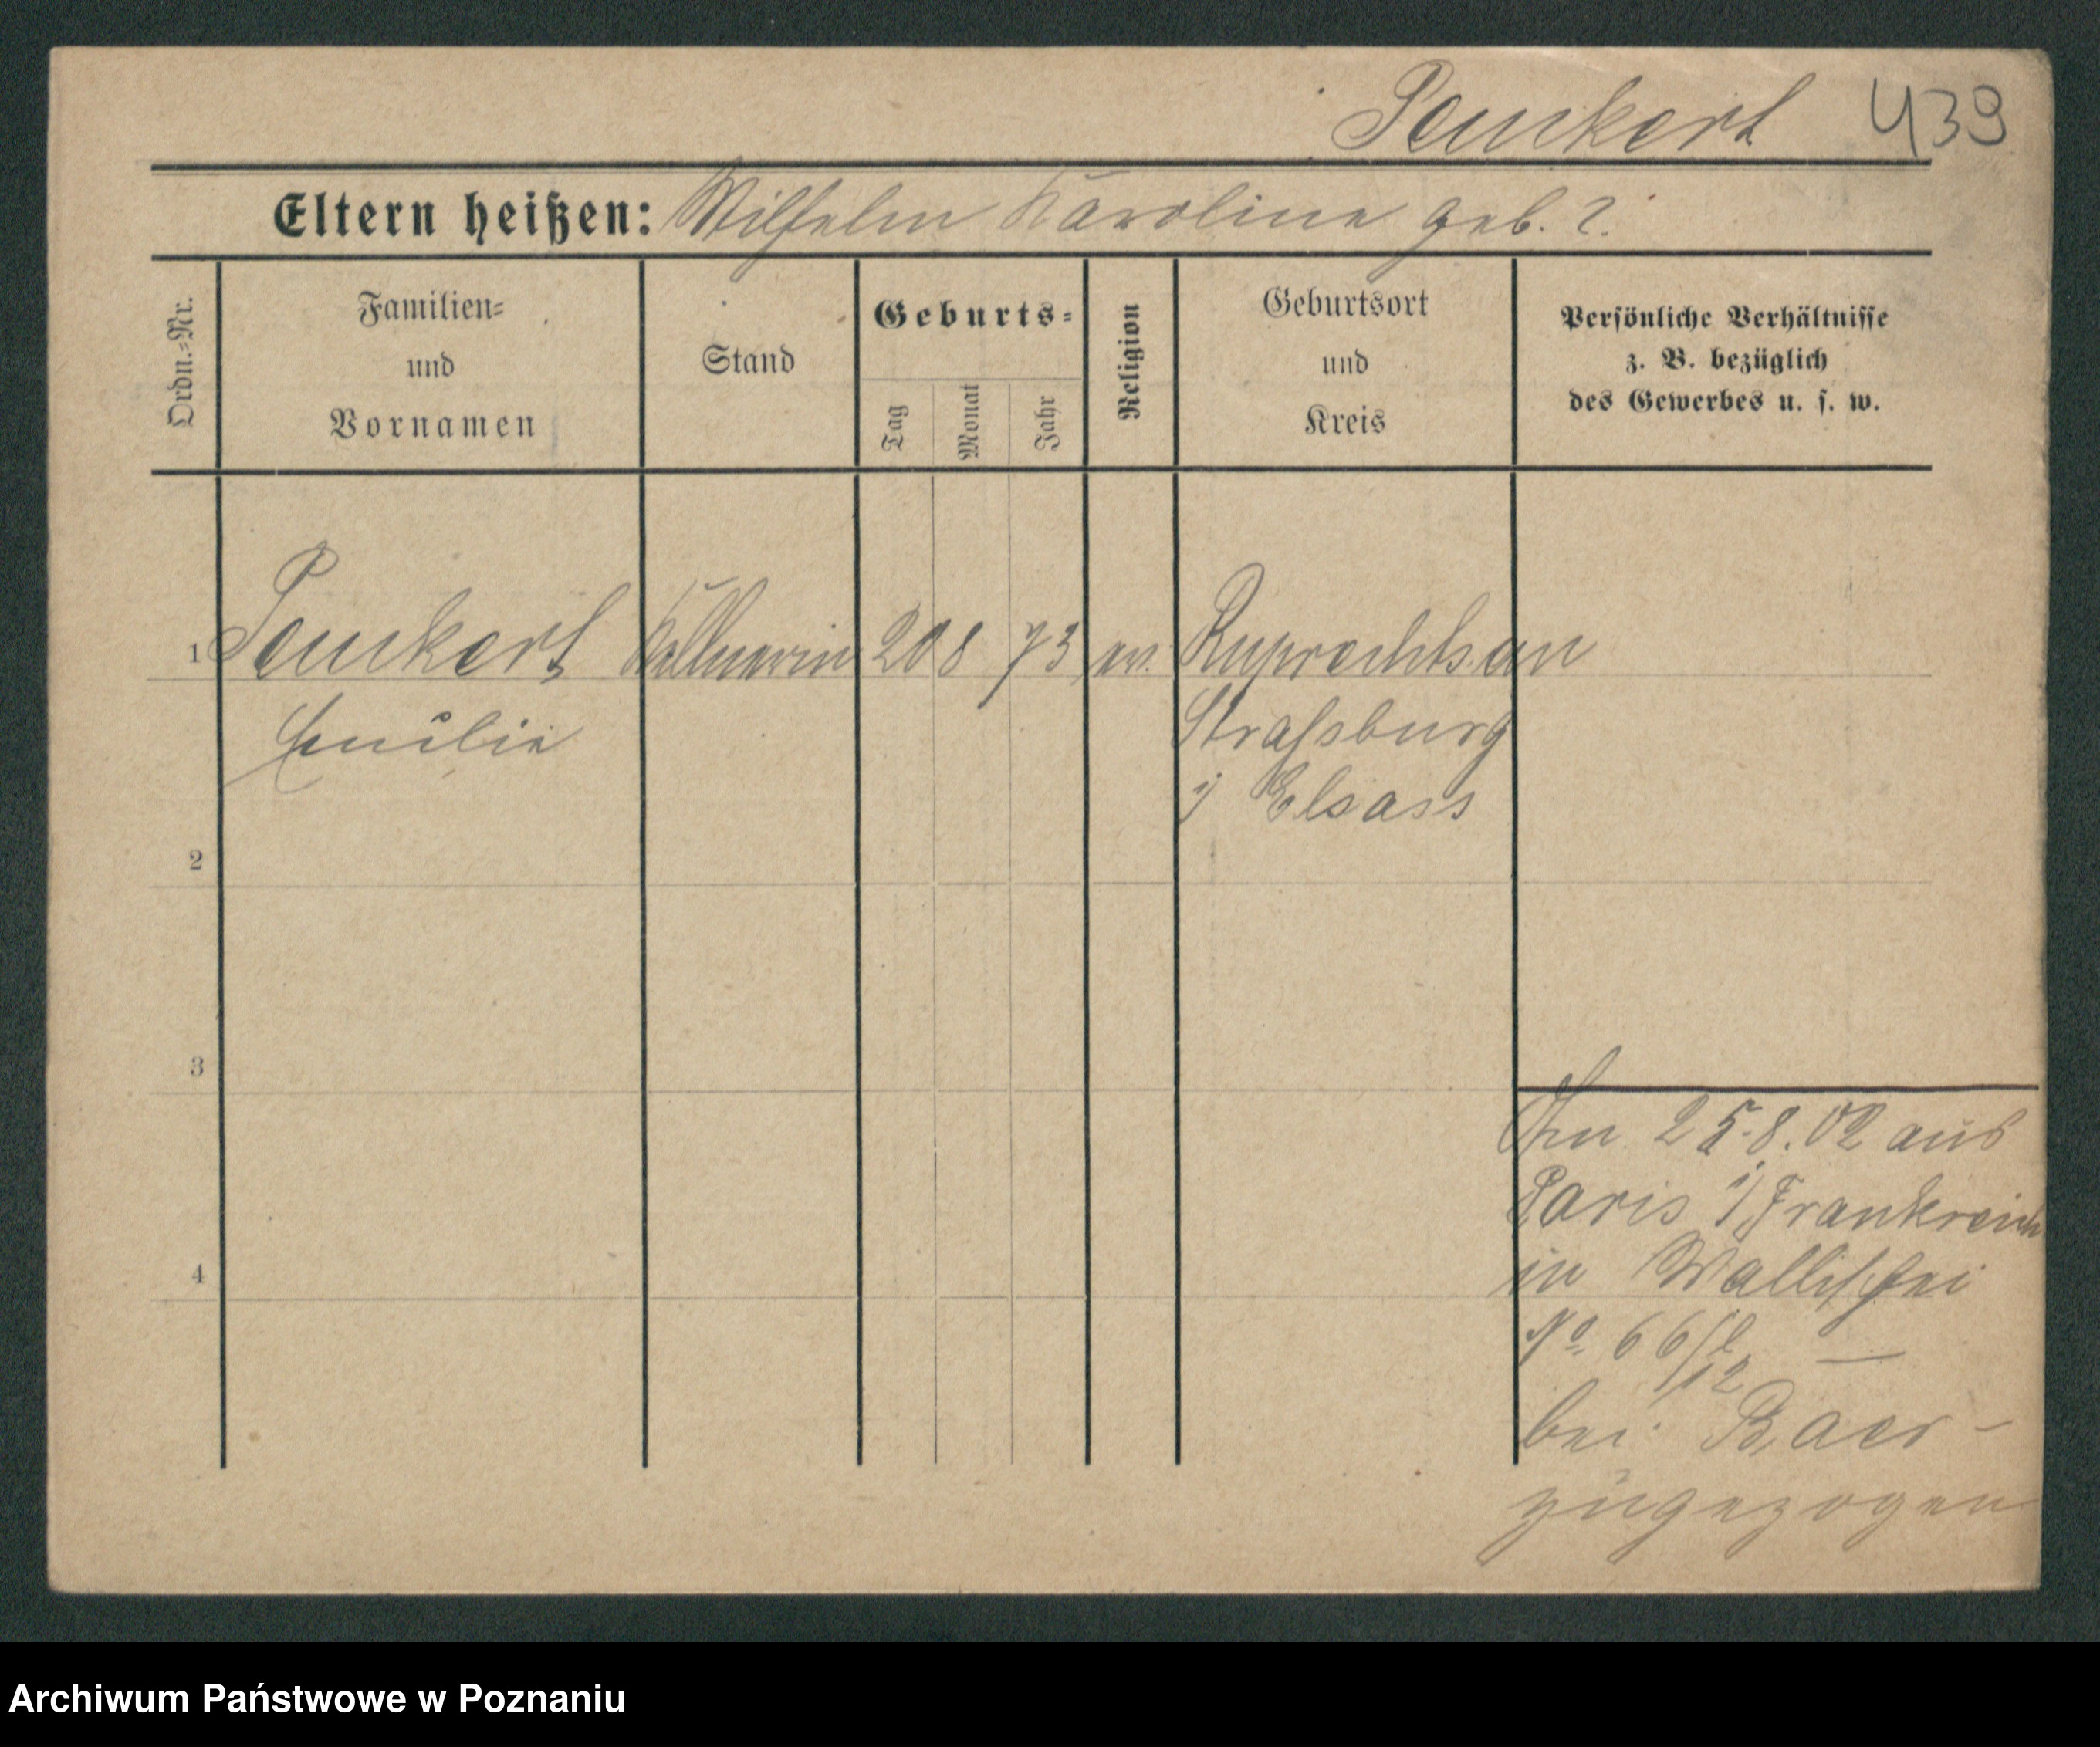 Penkert 439
Eltern heißen: Wilhelm Karoline geb. ?.
Ordn.-Nr.
Familien-
und
Vornamen
Stand
Geburts-
Tag
Monat
Jahr
Religion
Geburtsort
und
Kreis
Persönliche Verhältnisse
z. B. bezüglich
des Gewerbes u. s. w.
1 Penkert Kellnerin 20 8 73 ev. Ruprechtsau
Emilie Straßburg
i/ Elsass
2
3
4
Am 25.8.02 aus
Paris i/ Frankreich
in Wallischei
No 66/I
12 —
bei Baer -
zugezogen
Archiwum Państwowe w Poznaniu